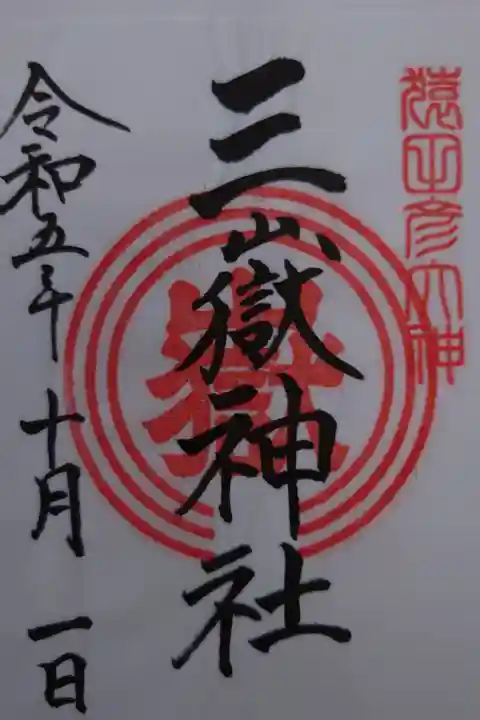 猿田彦大神
三嶽神社
嶽
令和五年十月一日